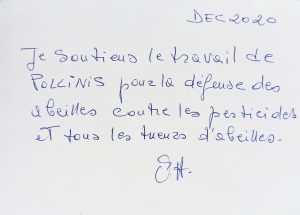 DEC 2020
Je soutiens le travail de
POLLINIS pour la défense des
abeilles contre les pesticides
ET tous les tueurs d'abeilles.